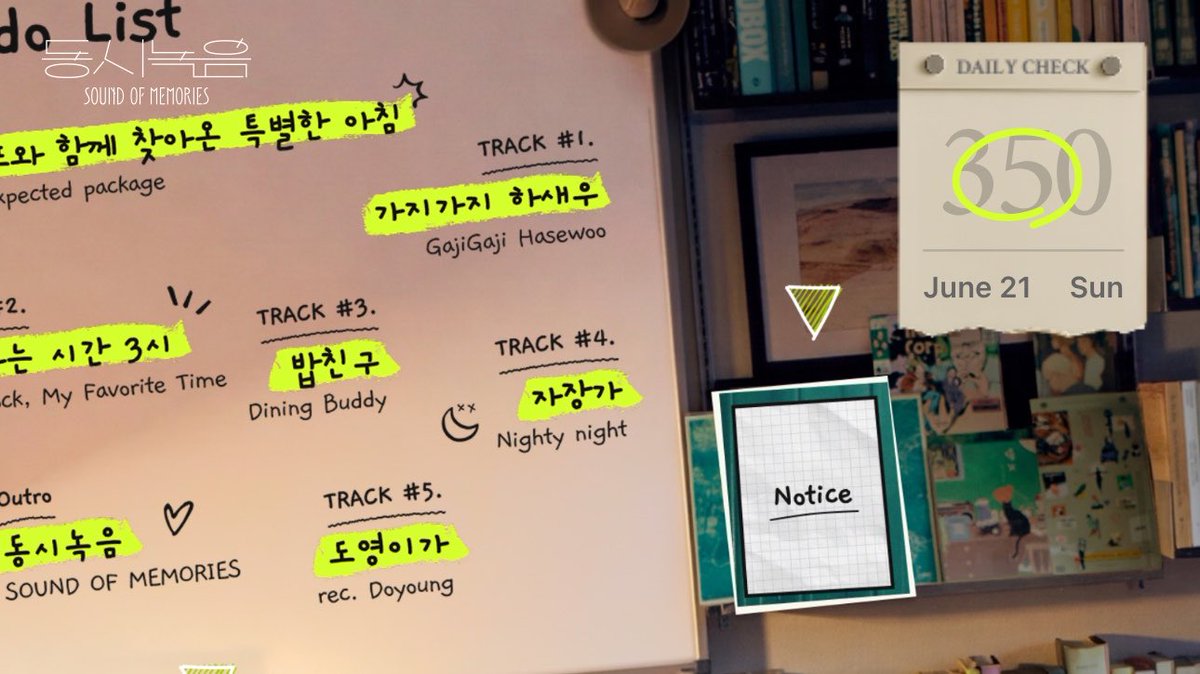 do List
동시녹음
SOUND OF MEMORIES
함께 찾아온 특별한 아침
xpected package
TRACK #1.
가지가지 하새우
GajiGaji Hasewoo
#2.
는 시간 3시
ck, My Favorite Time
TRACK #3.
밥친구
Dining Buddy
TRACK #4.
자장가
Nighty night
Outro
동시녹음
SOUND OF MEMORIES
TRACK #5.
도영이가
rec. Doyoung
DAILY CHECK
350
June 21 Sun
Notice